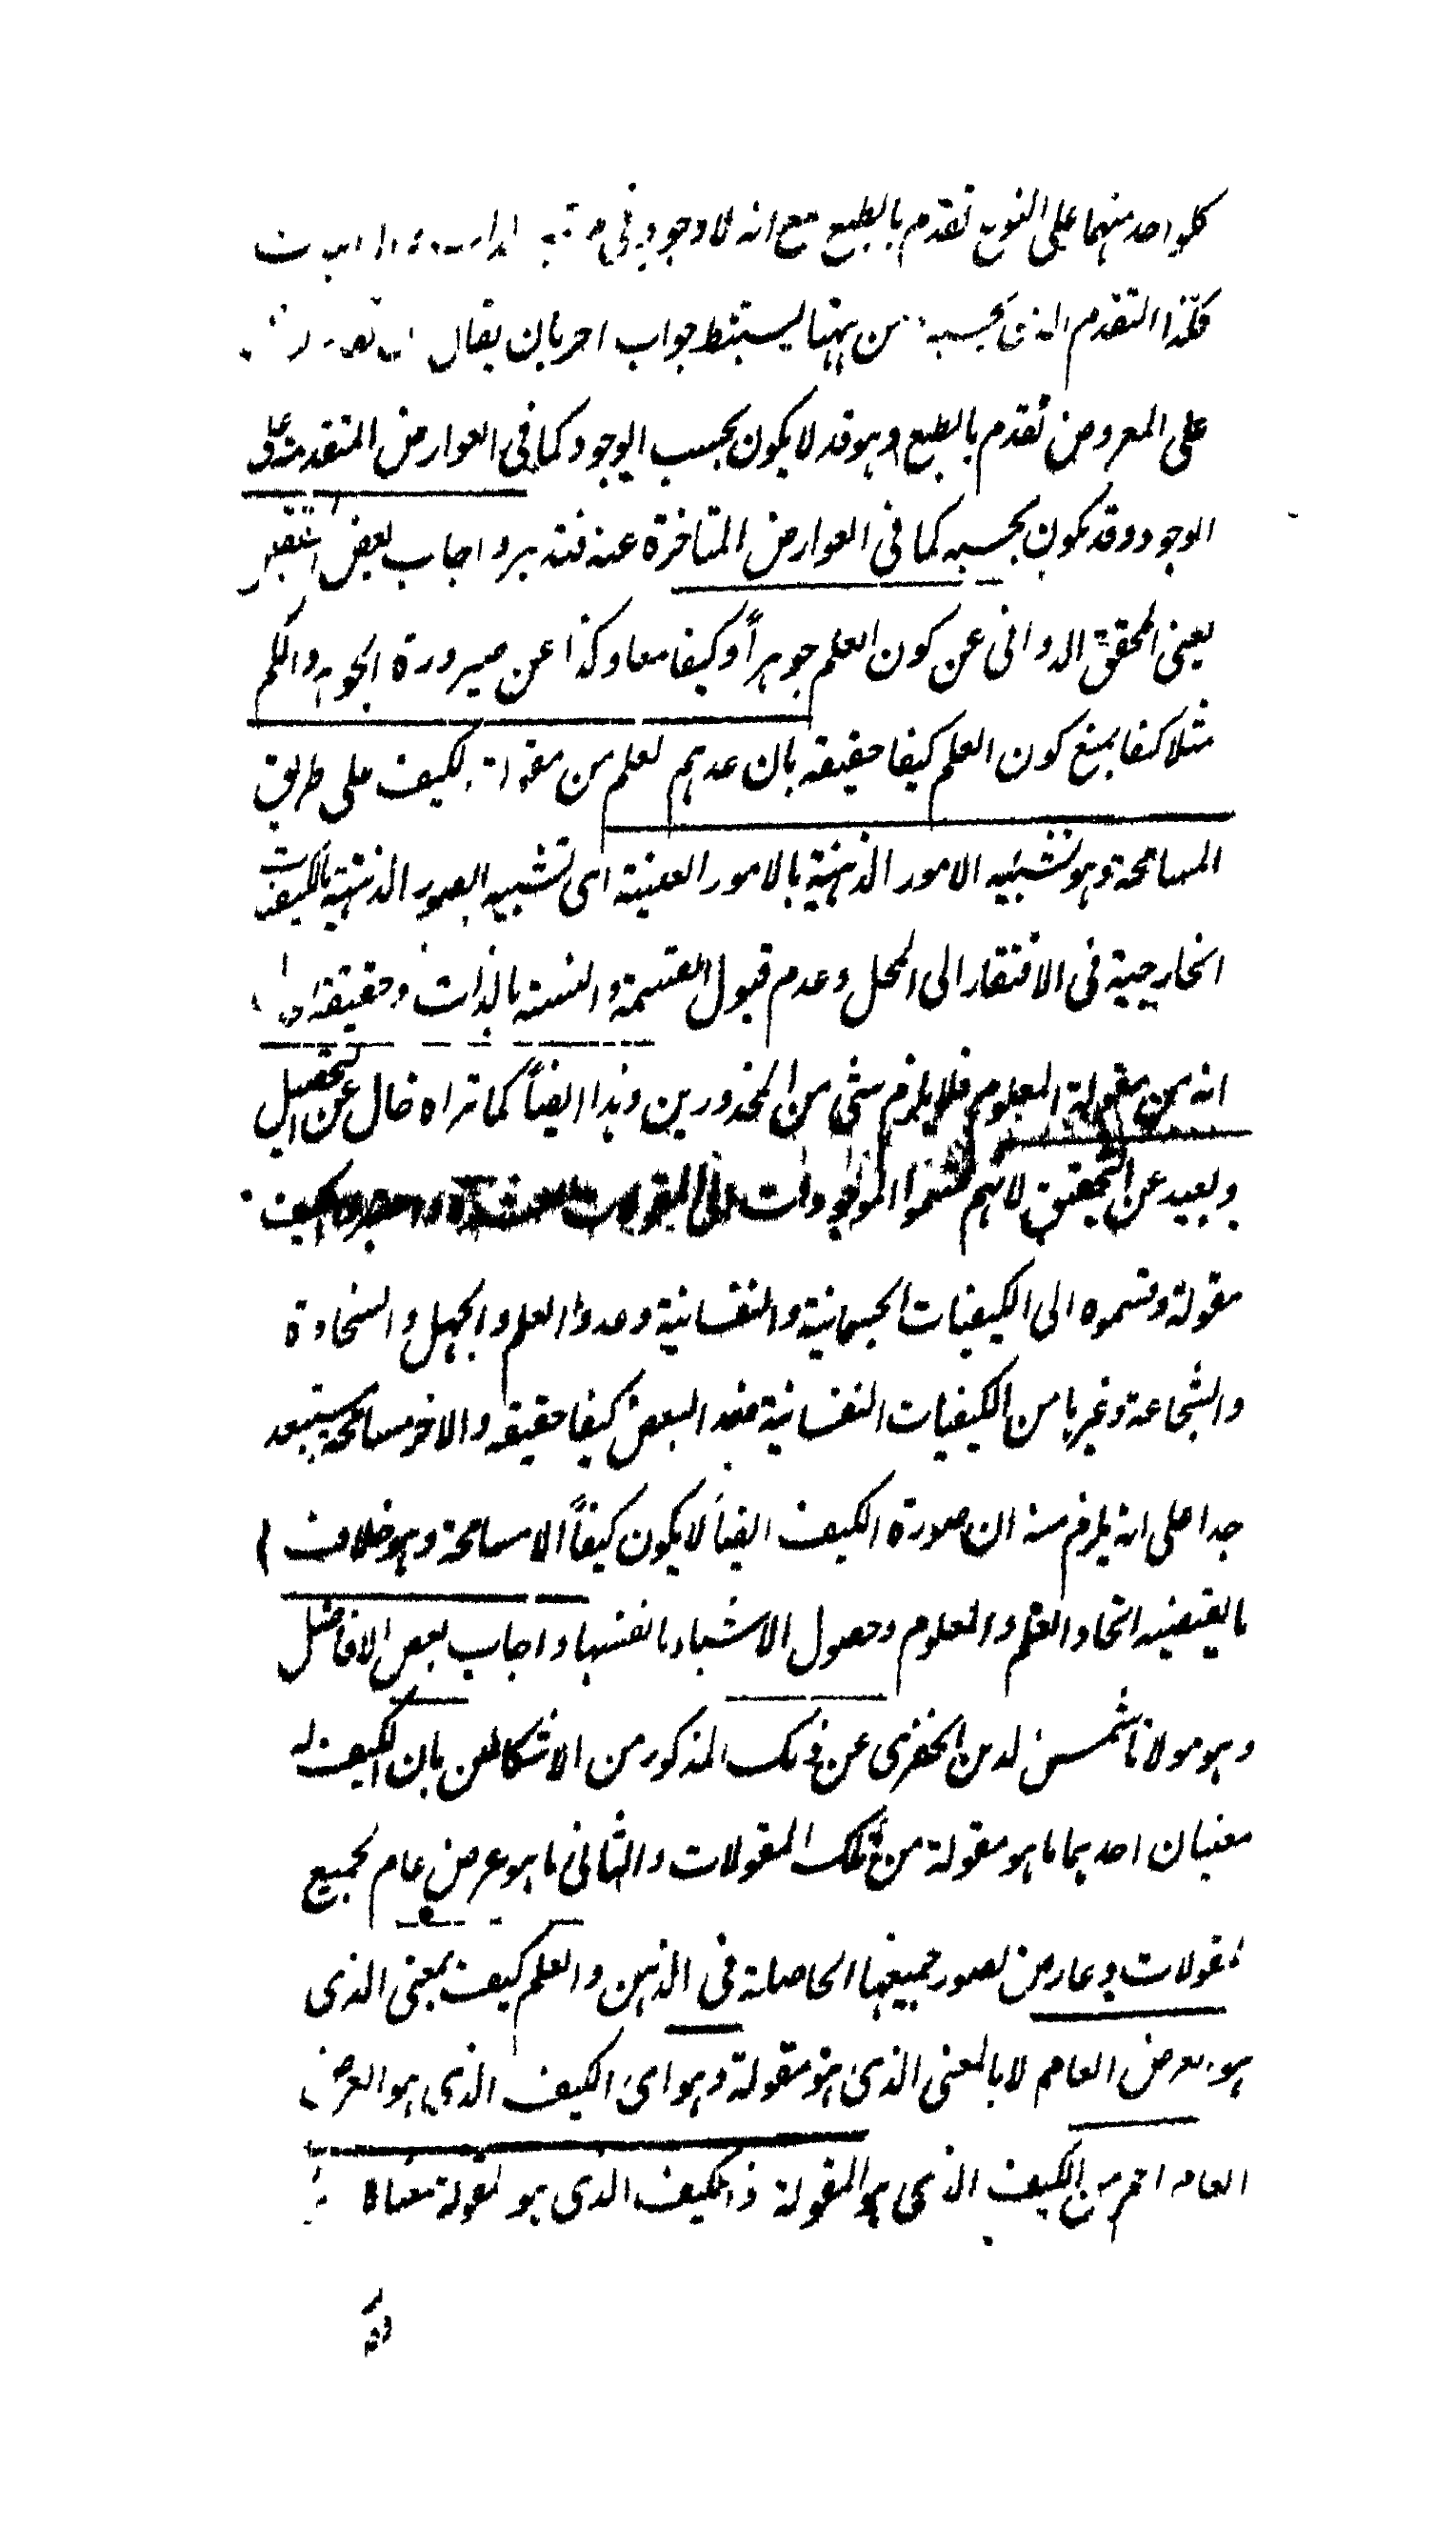 كلواحد منهما على النوع تقدم بالطبع مع انه لا وجود فى
فكذا التقدم الذى بحسبه من ههنا يستنبط جواب اخر بان يقال
على المعروض تقدم بالطبع وهو قد لا يكون بحسب الوجود كما فى العوارض المتقدمة على
الوجود وقد يكون بحسبه كما فى العوارض المتاخرة عنه فتدبر واجاب بعض
يعنى المحقق الدوانى عن كون العلم جوهراً وكيفا معا وكذا عن صيرورة الجوهر والكم
مثلا كيفا بمنع كون العلم كيفا حقيقة بان عدهم العلم من مقولة الكيف على طريق
المسامحة وهو تشبيه الامور الذهنية بالامور العينية اى تشبيه الصور الذهنية بالكيفيات
الخارجية فى الافتقار الى المحل وعدم قبول القسمة والنسبة بالذات وحقيقة
انه من مقولة المعلوم فلا يلزم شى من المحذورين وهذا ايضاً كما تراه خال عن التحصيل
وبعيد عن التحقيق لانهم قسموا الموجودات الى المقولات الكيف
مقولة وقسموه الى الكيفيات الجسمانية والنفسانية وعدوا العلم والجهل والسخاوة
والشجاعة وغيرها من الكيفيات النفسانية فعد البعض كيفا حقيقة والاخر مسامحة يستبعد
جدا على انه يلزم منه ان صورة الكيف ايضاً لا يكون كيفاً الا مسامحة وهو خلاف
ما يقتضيه اتحاد العلم والمعلوم وحصول الاشياء بانفسها واجاب بعض الافاضل
وهو مولانا شمس الدين الخفرى عن ذلك المذكور من الاشكالين بان الكيف له
معنيان احدهما ما هو مقولة من تلك المقولات والثانى ما هو عرض عام لجميع
لمقولات وعارض لصور جميعها الحاصلة فى الذهن والعلم كيف بمعنى الذى
هو العرض العام لا بالمعنى الذى هو مقولة وهو اى الكيف الذى هو العرض
العام اعم من الكيف الذى هو المقولة فالكيف الذى هو لمقولة معناه